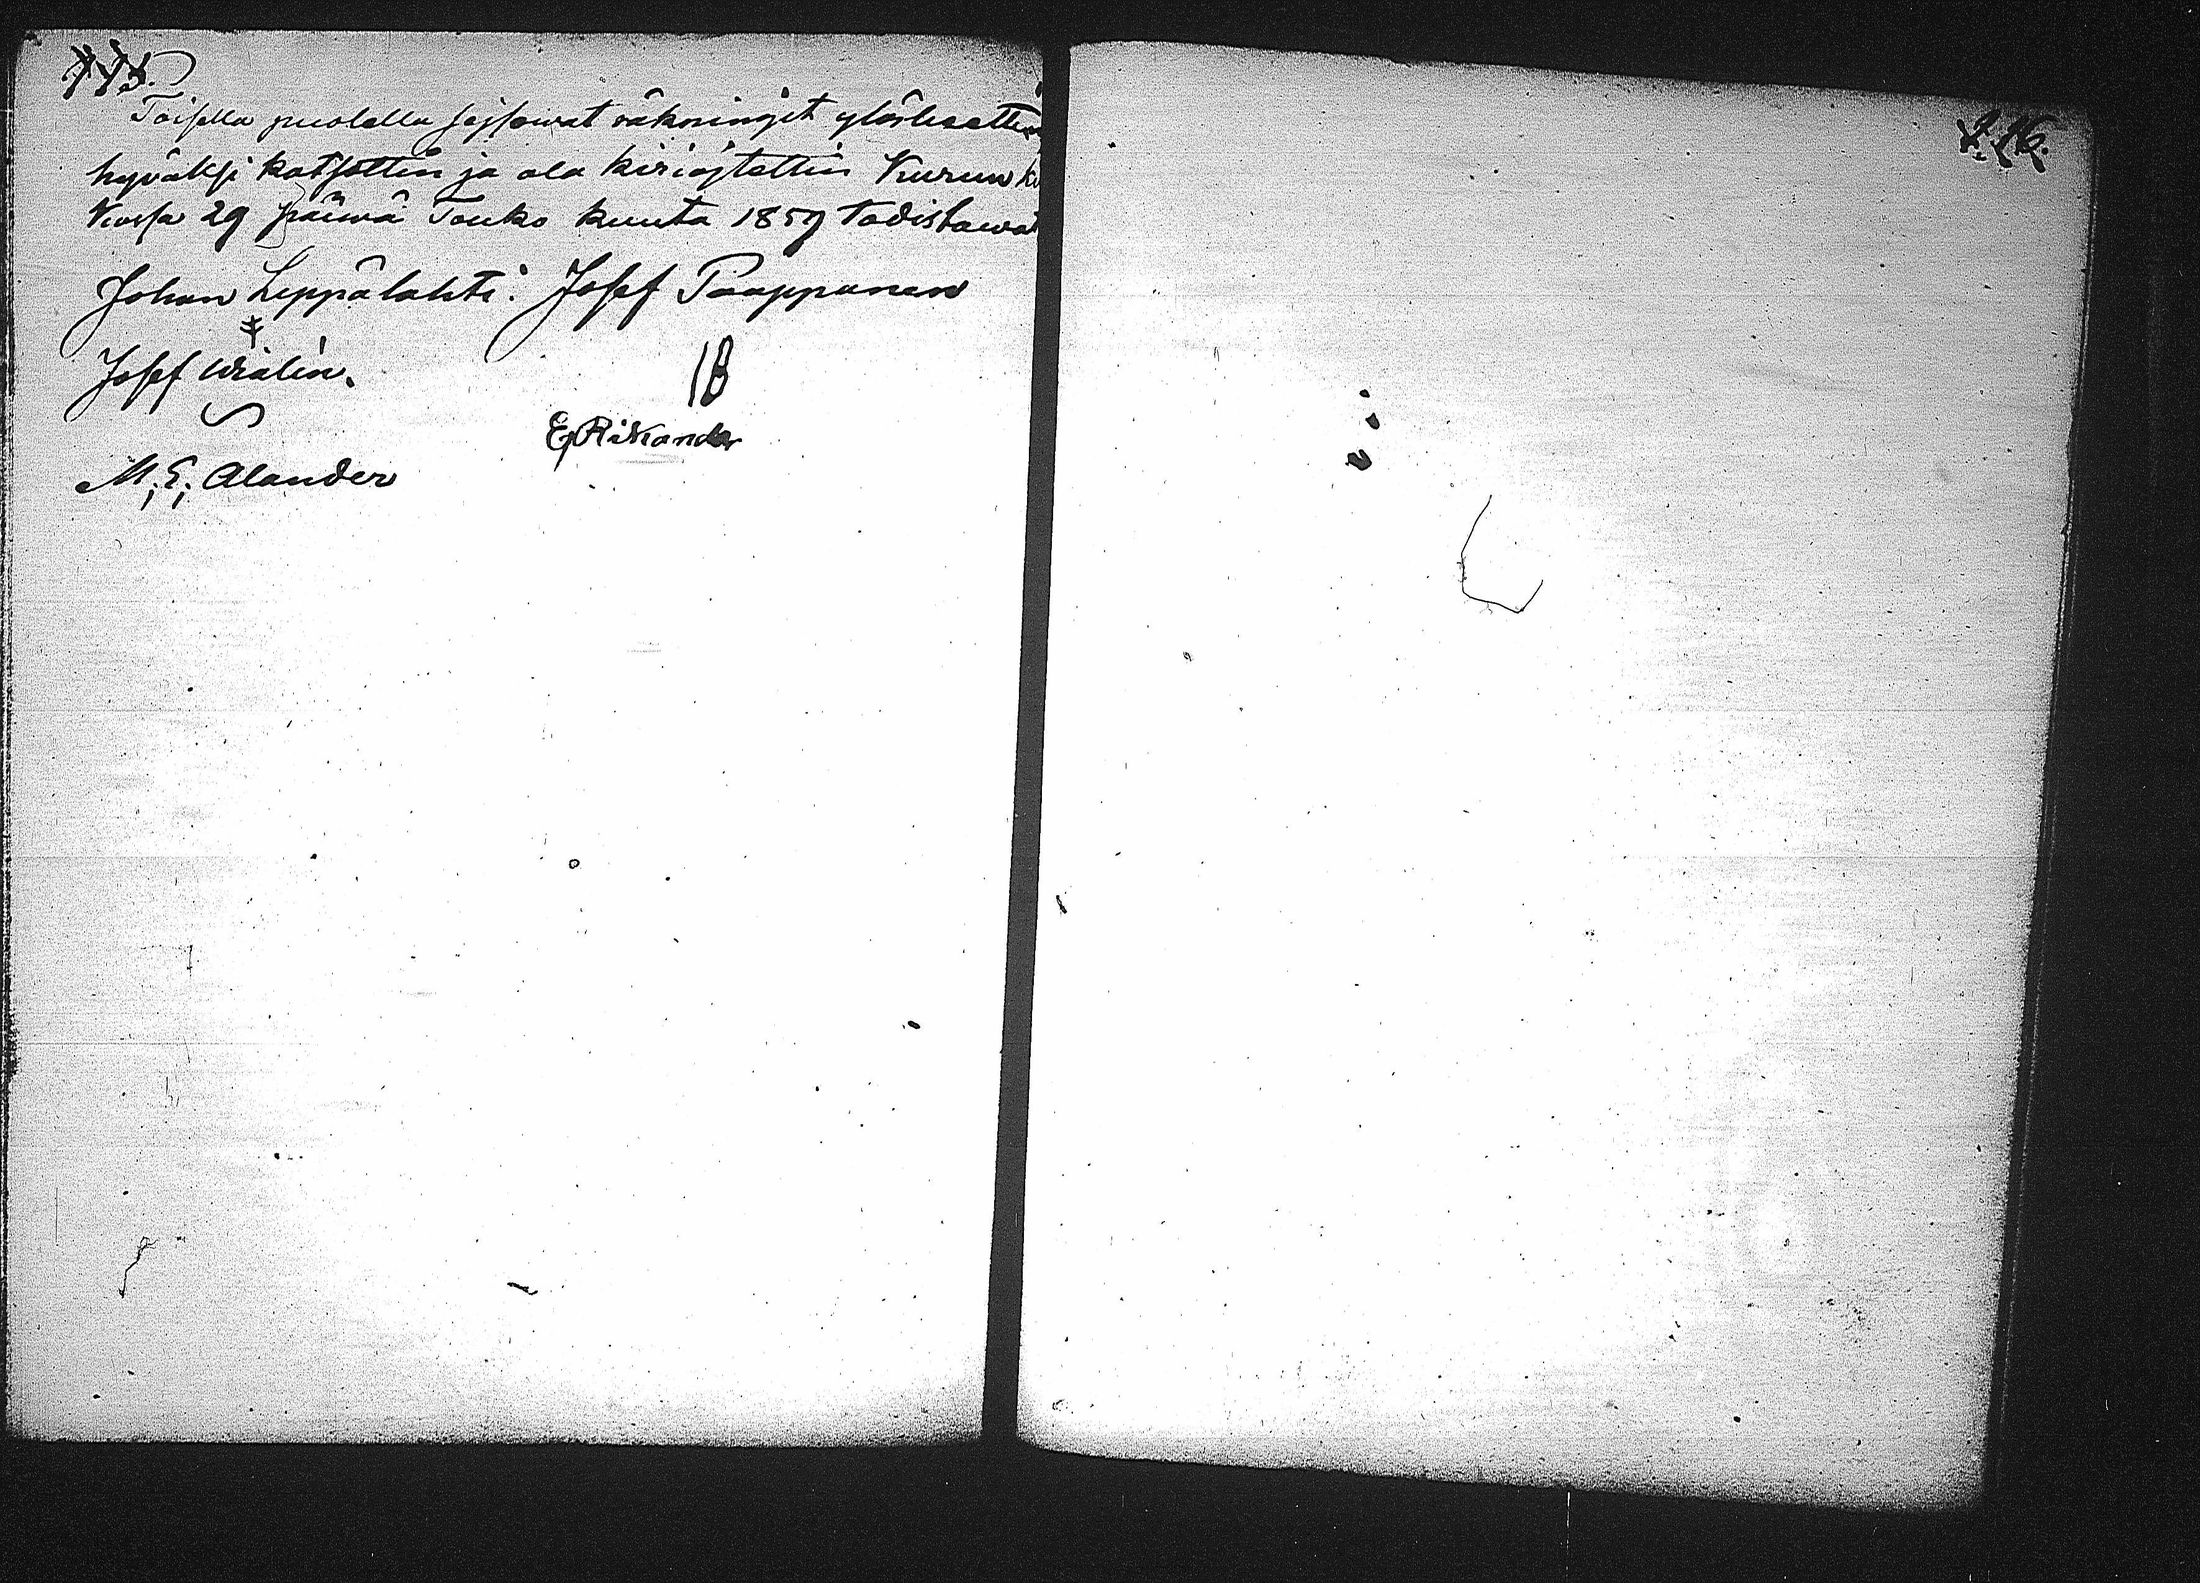 115.
Toisella puolella sejsowat räkningit ylösluettin
hyväksi katsottin ja ala kiriojtettin Kurun ki
kossa 29 päiwä Touko kuuta 1859 todistawat
Johan Leppälahti. Josef Paappanen
Josef Wialèn.
E Rikander
M. E. Alander
116.